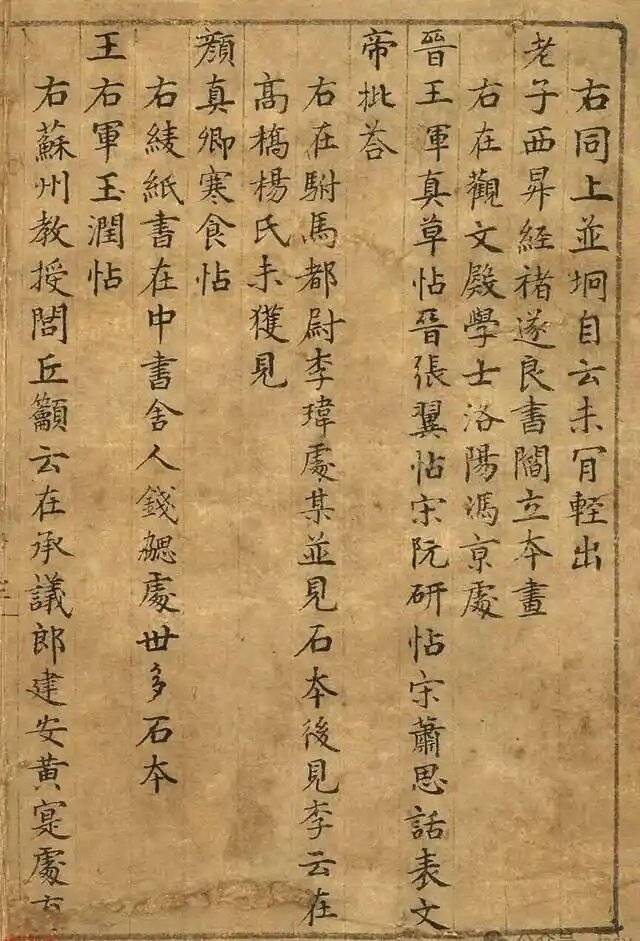 右同上並坰自云未肎輕出
老子西昇經褚遂良書閻立本畫
右在觀文殿學士洛陽馮京處
晉王軍真草帖晉張翼帖宋阮研帖宋蕭思話表文
帝批荅
右在駙馬都尉李瑋處某並見石本後見李云在
高橋楊氏未獲見
顏真卿寒食帖
右綾紙書在中書舍人錢勰處世多石本
王右軍玉潤帖
右蘇州教授閭丘籲云在承議郎建安黃寔處